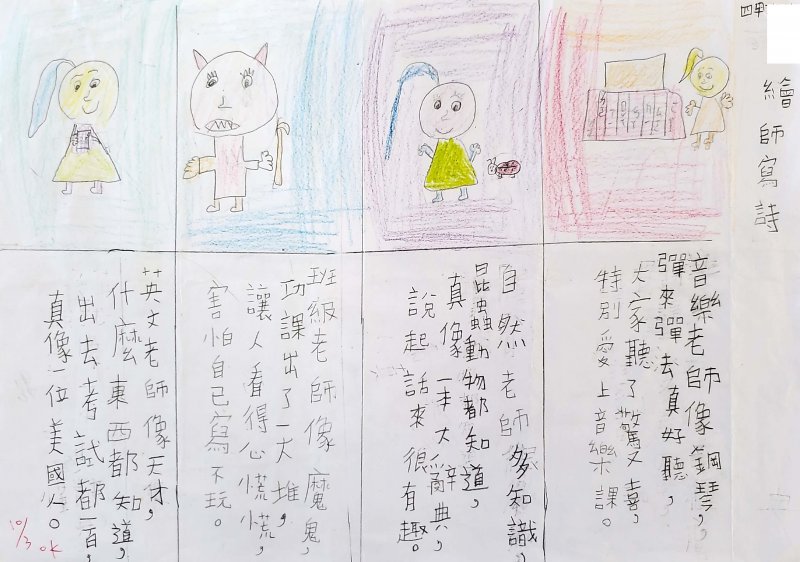 繪師寫詩
音樂老師像鋼琴，
彈來彈去真好聽，
大家聽了驚又喜，
特別愛上音樂課。
自然老師多知識，
昆蟲動物都知道，
真像一本大辭典，
說起話來很有趣。
班級老師像魔鬼，
功課出了一大堆，
讓人看得心慌慌，
害怕自己寫不玩。
英文老師像天才，
什麼東西都知道，
出去考試都一百，
真像一位美國人。
10/3 OK